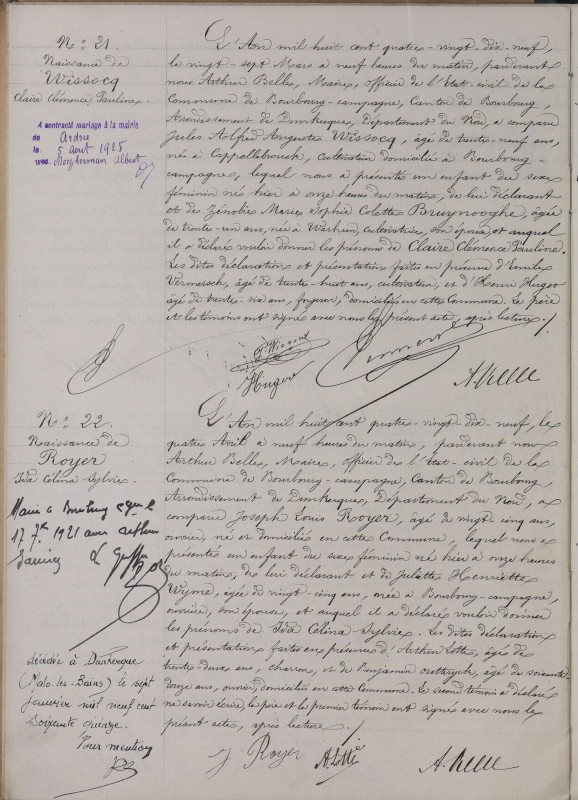 N.º 21.
Naissance de
Wissocq
Claire Clémence Pauline.
A contracté mariage à la mairie
de Ardres
le 5 Aout 1925
avec Albert
L'An mil huit cent quatre-vingt-dix-neuf,
le vingt-sept Mars à neuf heures du matin, pardevant
nous Arthur Belle, Maire, Officier de l'Etat-civil de la
Commune de Bourbourg-campagne, Canton de Bourbourg,
Arrondissement de Dunkerque, Département du Nord, a comparu
Jules Alfred Auguste Wissocq, âgé de trente-neuf ans,
né à Cappellebrouck, cultivateur domicilié à Bourbourg-
campagne, lequel nous a présenté un enfant du sexe
féminin né hier à onze heures du matin, de lui déclarant
et de Zénobie Marie Sophie Colette Bruynooghe, âgée
de trente-un ans, née à Warhem, cultivatrice, son épouse, et auquel
il a déclaré vouloir donner les prénoms de Claire Clémence Pauline.
Les dites déclaration et présentation faites en présence d'Emile
Vermersch, âgé de trente-huit ans, cultivateur, et d'Henri Hugoo
âgé de trente-six ans, domiciliés en cette Commune. Le père
et les témoins ont signé avec nous le présent acte, après lecture.
J. Wissocq
Hugoo
A. Belle
N.º 22.
Naissance de
Royer
Ida Célina Sylvie.
Marié à
17 7bre 1921 avec Arthur
décédée à Dunkerque
(Malo-les-Bains) le sept
janvier mil neuf cent
soixante quinze.
Pour mention
L'An mil huit cent quatre-vingt-dix-neuf, le
quatre Avril à neuf heures du matin, pardevant nous
Arthur Belle, Maire, Officier de l'Etat-civil de la
Commune de Bourbourg-campagne, Canton de Bourbourg,
Arrondissement de Dunkerque, Département du Nord, a
comparu Joseph Louis Royer, âgé de vingt cinq ans,
ouvrier, né et domicilié en cette Commune, lequel nous a
présenté un enfant du sexe féminin né hier à onze heures
du matin, de lui déclarant et de Juliette Henriette
Wyme, âgée de vingt-cinq ans, née à Bourbourg-campagne,
ouvrière, son épouse, et auquel il a déclaré vouloir donner
les prénoms de Ida Célina Sylvie. Les dites déclaration
et présentation faites en présence d'Arthur Lotte, âgé de
trente-deux ans, charron, et de Benjamin âgé de soixante
douze ans, ouvrier, domiciliés en cette Commune. Le second témoin a déclaré
ne savoir écrire, le père et le premier témoin ont signé avec nous le
présent acte, après lecture.
J Royer
A. Lotte
A. Belle